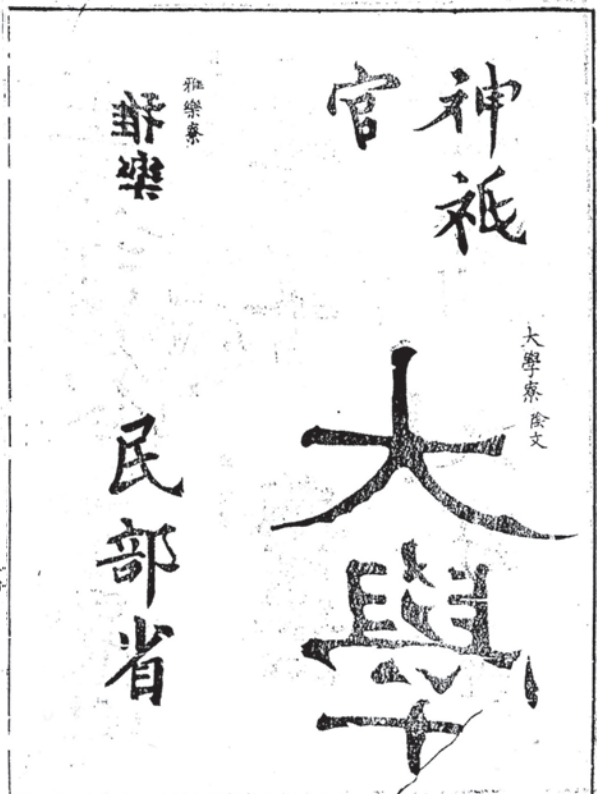 神祇
官
大學寮 陰文
大學
雅樂寮
雅樂
民部省